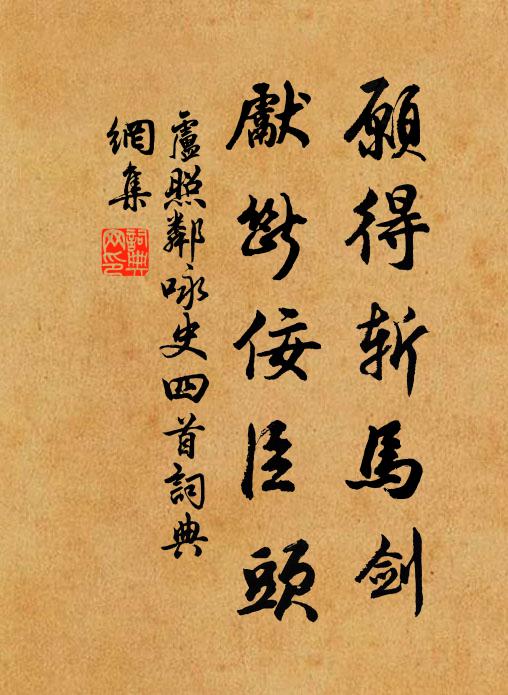 願得斬馬劍
獻斷佞臣頭
盧照鄰咏史四首詞典
網集
詞典
网印